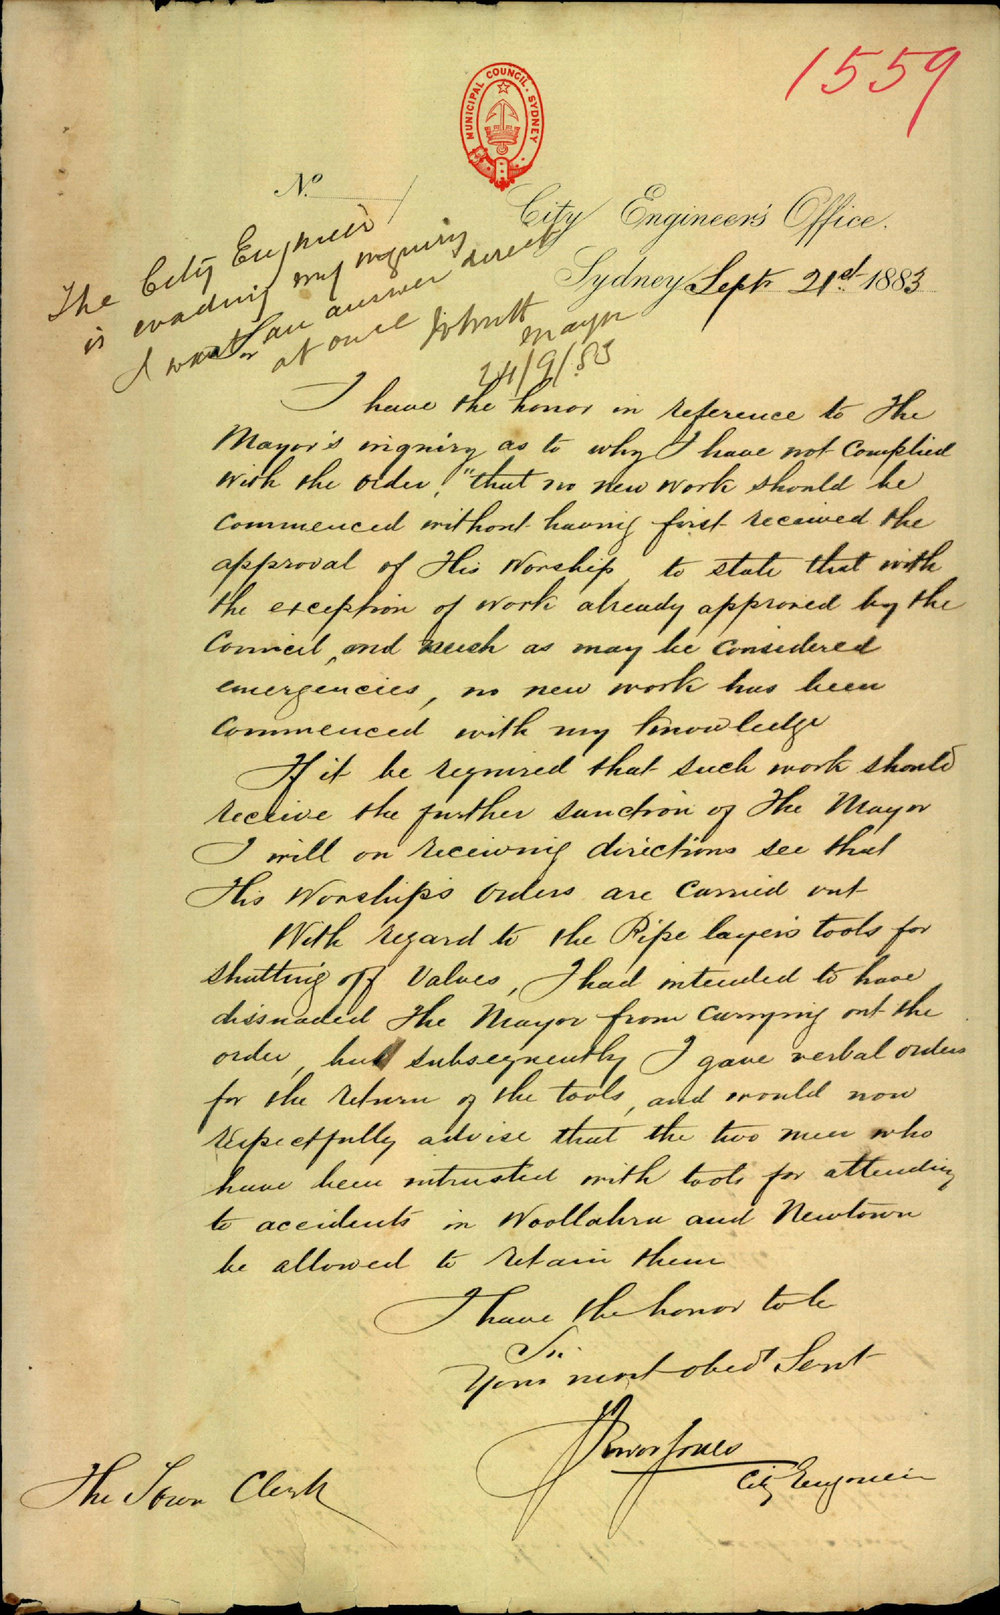 1559
MUNICIPAL COUNCIL. SYDNEY
No.
City Engineer's Office.
Sydney Sept 21st 1883
The City Engineer
is evading my inquiry
I want an answer direct
at once
Mayor
24/9/83
I have the honor in reference to The
Mayor's inquiry as to why I have not complied
with the order, "that no new work should be
commenced without having first received the
approval of His Worship, to state that with
the exception of work already approved by the
Council, and such as may be considered
emergencies, no new work has been
commenced with my knowledge
If it be required that such work should
receive the further sanction of The Mayor
I will on receiving directions see that
His Worship's orders are carried out
With regard to the Pipe layers tools for
shutting off Valves, I had intended to have
dissuaded The Mayor from carrying out the
order, but subsequently I gave verbal orders
for the return of the tools, and would now
respectfully advise that the two men who
have been intrusted with tools for attending
to accidents in Woollahra and Newtown
be allowed to retain them
I have the honor to be
Sir
Your most obedt Servt
Bevor Jones
City Engineer
The Town Clerk